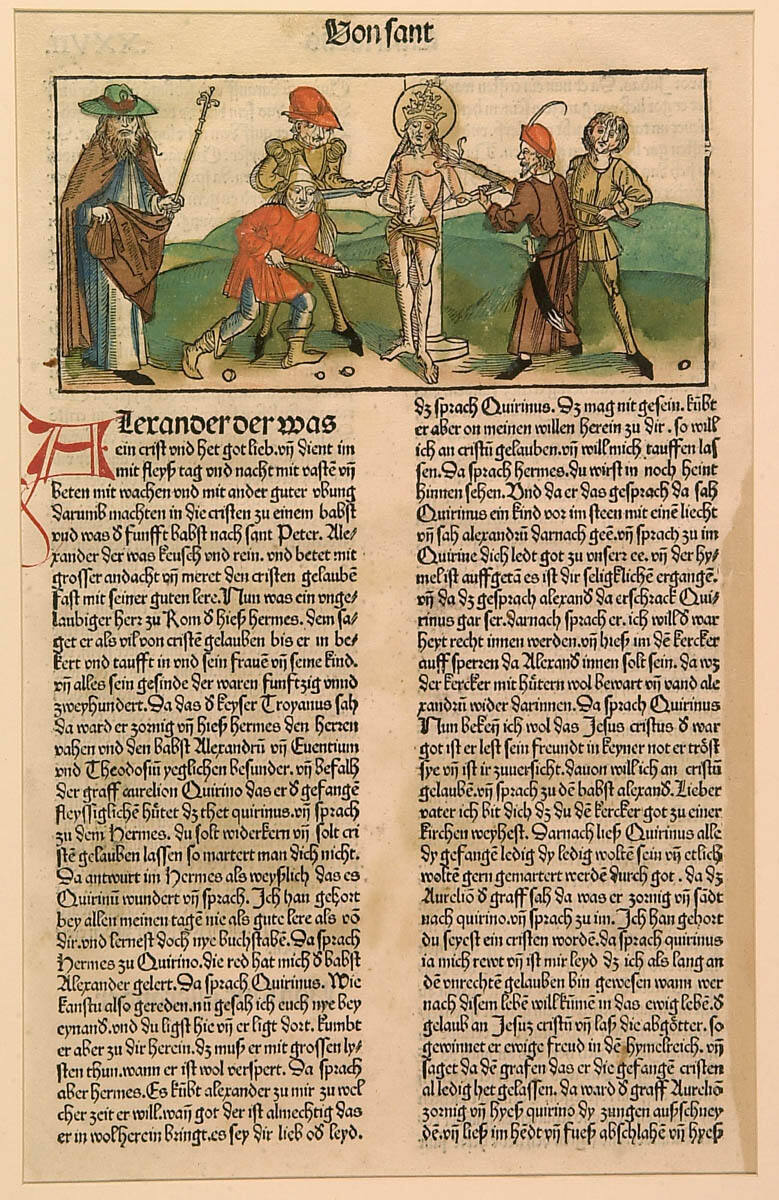 Von sant
Alexander der was
ein crist vnd het got lieb. vn̄ dient im
mit fleyß tag vnd nacht mit vastē vn̄
beten mit wachen vnd mit ander guter vbung
darumb machten in die cristen zu einem babst
vnd was d̄ funfft babst nach sant Peter. Ale⸗
xander der was keusch vnd rein. vnd betet mit
grosser andacht vn̄ meret den cristen gelaubē
fast mit seiner guten lere. Nun was ein vnge⸗
laubiger herr zu Rom d̄ hieß hermes. dem sa⸗
get er als vil von cristē gelauben bis er in be⸗
kert vnd taufft in vnd sein frauē vn̄ seine kind.
vn̄ alles sein gesinde der waren funftzig vnnd
zweyhundert. Da das d̄ keyser Troyanus sah
da ward er zornig vn̄ hieß hermes den herren
vahen vnd den babst Alexandrū vn̄ Euentium
vnd Theodosiū yeglichen besunder. vn̄ befalh
der graff aurelion Quirino das er d̄ gefangē
fleyssiglichē hütet dz thet quirinus. vn̄ sprach
zu dem Hermes. du solt widerkern vn̄ solt cri
stē gelauben lassen so martert man dich nicht.
Da antwurt im Hermes als weyßlich das es
Quirinū wundert vn̄ sprach. Ich han gehort
bey allen meinen tagē nie als gute lere als vō
dir. vnd lernest doch nye buchstabē. Da sprach
Hermes zu Quirino. die red hat mich d̄ babst
Alexander gelert. Da sprach Quirinus. Wie
kanstu also gereden. nū gesah ich euch nye bey
eynand̄. vnd du ligst hie vn̄ er ligt dort. kumbt
er aber zu dir herein. dz muß er mit grossen ly⸗
sten thun. wann er ist wol verspert. Da sprach
aber hermes. Es kūbt alexander zu mir zu wel
cher zeit er will. wan̄ got der ist almechtig das
er in wol herein bringt. es sey dir lieb od̄ leyd.
dz sprach Quirinus. Dz mag nit gesein. kūbt
er aber on meinen willen herein zu dir. so will
ich an cristū gelauben. vn̄ will mich tauffen las
sen. Da sprach hermes. du wirst in noch heint
hinnen sehen. Vnd da er das gesprach da sah
Quirinus ein kind vor im steen mit einē liecht
vn̄ sah alexandrū darnach gee. vn̄ sprach zu im
Quirine dich ledt got zu vnser ee. vn̄ der hy⸗
mel ist auffgetā es ist dir seligklichē ergangē.
vn̄ da dz gesprach alexand̄ da erschrack Qui⸗
rinus gar ser. darnach sprach er. ich will d̄ war
heyt recht innen werden. vn̄ hieß im dē kercker
auff sperren da Alexand̄ innen solt sein. da wz
der kercker mit hütern wol bewart vn̄ vand ale
xandrū wider darinnen. Da sprach Quirinus
Nun beken̄ ich wol das Jesus cristus d̄ war
got ist er lest sein freundt in keyner not er tröst
sye vn̄ ist ir zuuersicht. dauon will ich an cristū
gelaubē. vn̄ sprach zu dē babst alexand̄. Lieber
vater ich bit dich dz du dē kercker got zu einer
kirchen weyhest. Darnach ließ Quirinus alle
dy gefangē ledig dy ledig woltē sein vn̄ etlich
woltē gern gemartert werdē durch got. da dz
Aureliō d̄ graff sah da was er zornig vn̄ sādt
nach quirino. vn̄ sprach zu im. Ich han gehort
du seyest ein cristen wordē. da sprach quirinus
ia mich rewt vn̄ ist mir leyd dz ich als lang an
dē vnrechtē gelauben bin gewesen wann wer
nach disem lebē will kūmē in das ewig lebē. d̄
gelaub an Jesuz cristū vn̄ laß die abgötter. so
gewinnet er ewige freud in dē hymelreich. vn̄
saget da dē grafen das er die gefangē cristen
al ledig het gelassen. da ward d̄ graff Aureliō
zornig vn̄ hyeß quirino dy zungen außschney
dē. vn̄ ließ im hēdt vn̄ fueß abschlahē vn̄ hyeß